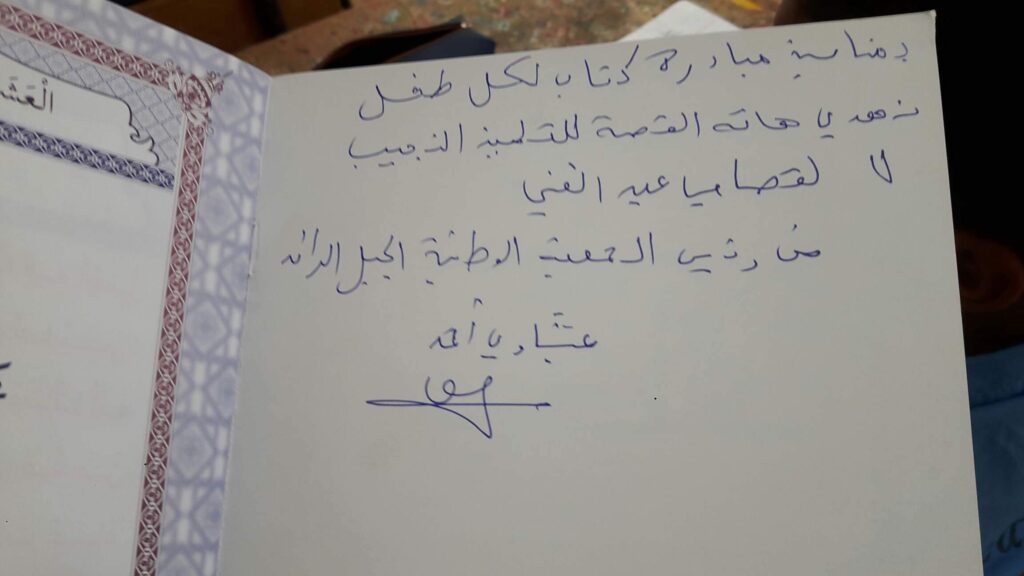 بمناسبة مبادرة كتاب لكل طفل
نهدي هاته القصة للتلميذ النجيب
لقصاصيا عبد الغني
من رئيس الجمعية الوطنية الجيل الرائد
عشاوي أحمد